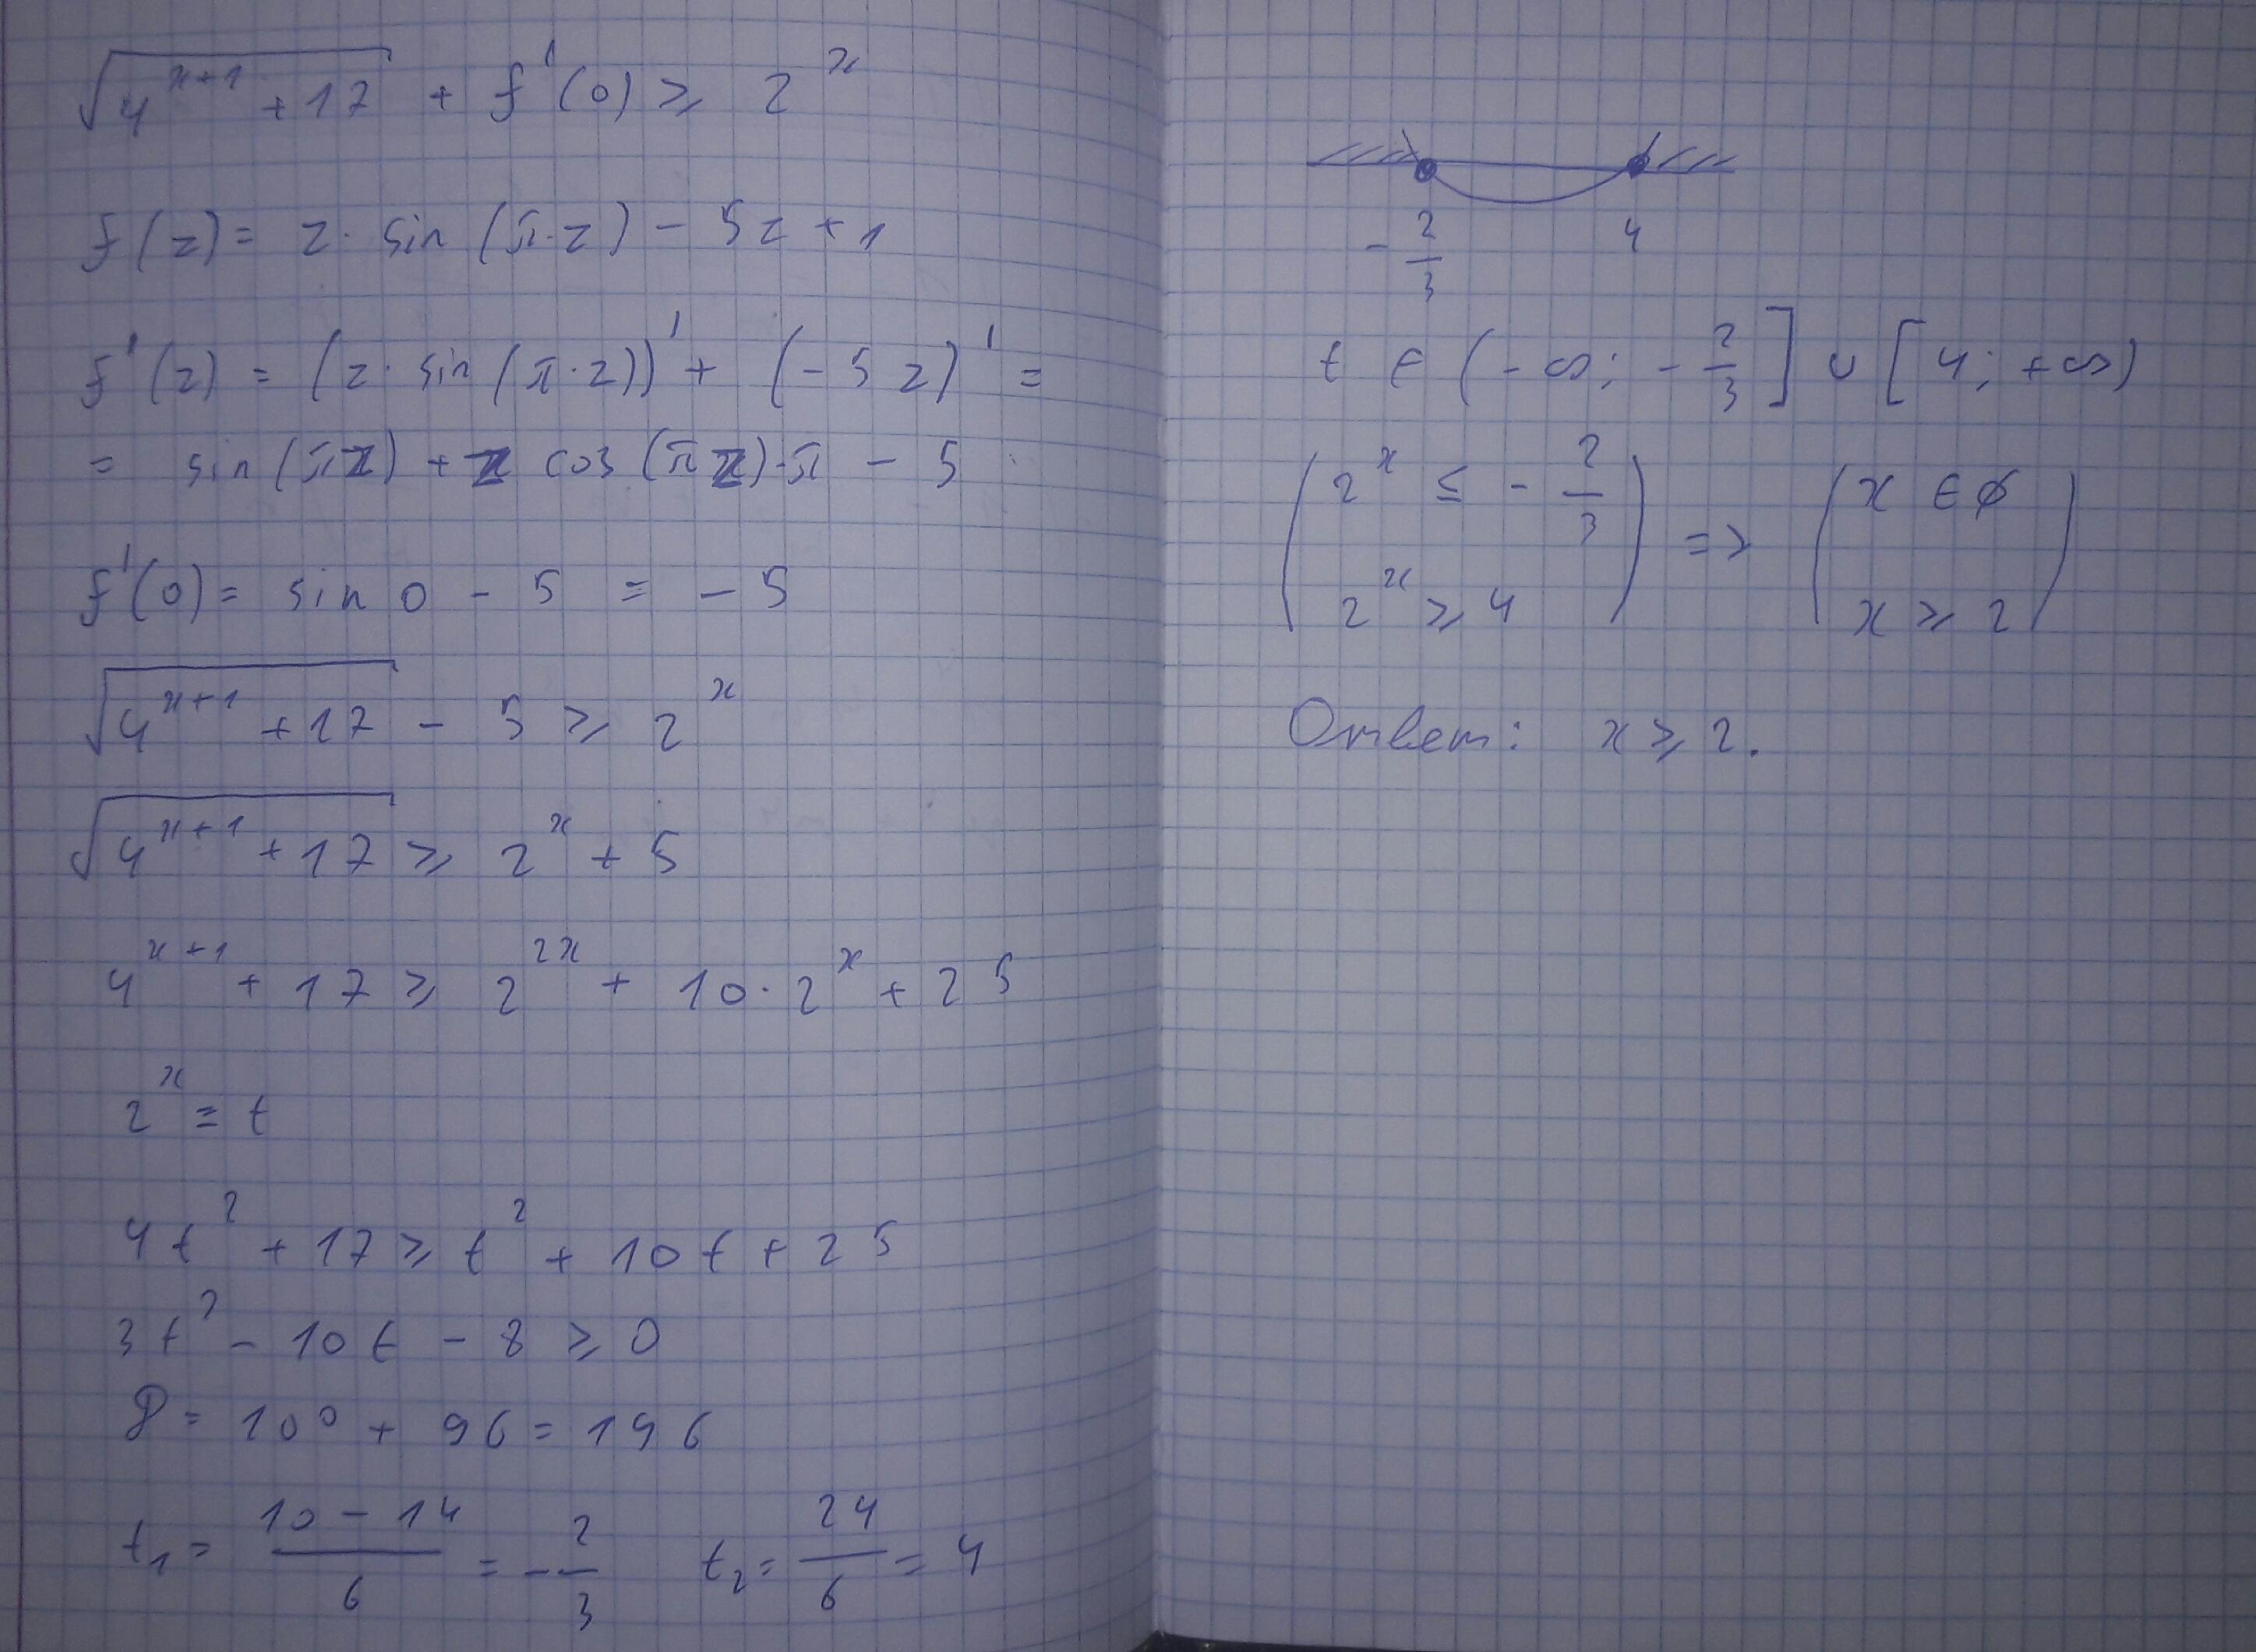 √(4^(x+1) + 17) + f'(0) ⩾ 2^x
f(z) = z · sin(π·z) - 5z + 1
f'(z) = (z · sin(π·z))' + (-5z)' =
= sin(πz) + z cos(πz)·π - 5
f'(0) = sin 0 - 5 = -5
√(4^(x+1) + 17) - 5 ⩾ 2^x
√(4^(x+1) + 17) ⩾ 2^x + 5
4^(x+1) + 17 ⩾ 2^(2x) + 10·2^x + 25
2^x = t
4t² + 17 ⩾ t² + 10t + 25
3t² - 10t - 8 ⩾ 0
D = 100 + 96 = 196
t₁ = (10 - 14)/6 = -2/3 t₂ = 24/6 = 4
-2/3 4
t ∈ (-∞; -2/3] ∪ [4; +∞)
(2^x ⩽ -2/3 ; 2^x ⩾ 4) => (x ∈ ∅ ; x ⩾ 2)
Ответ: x ⩾ 2.